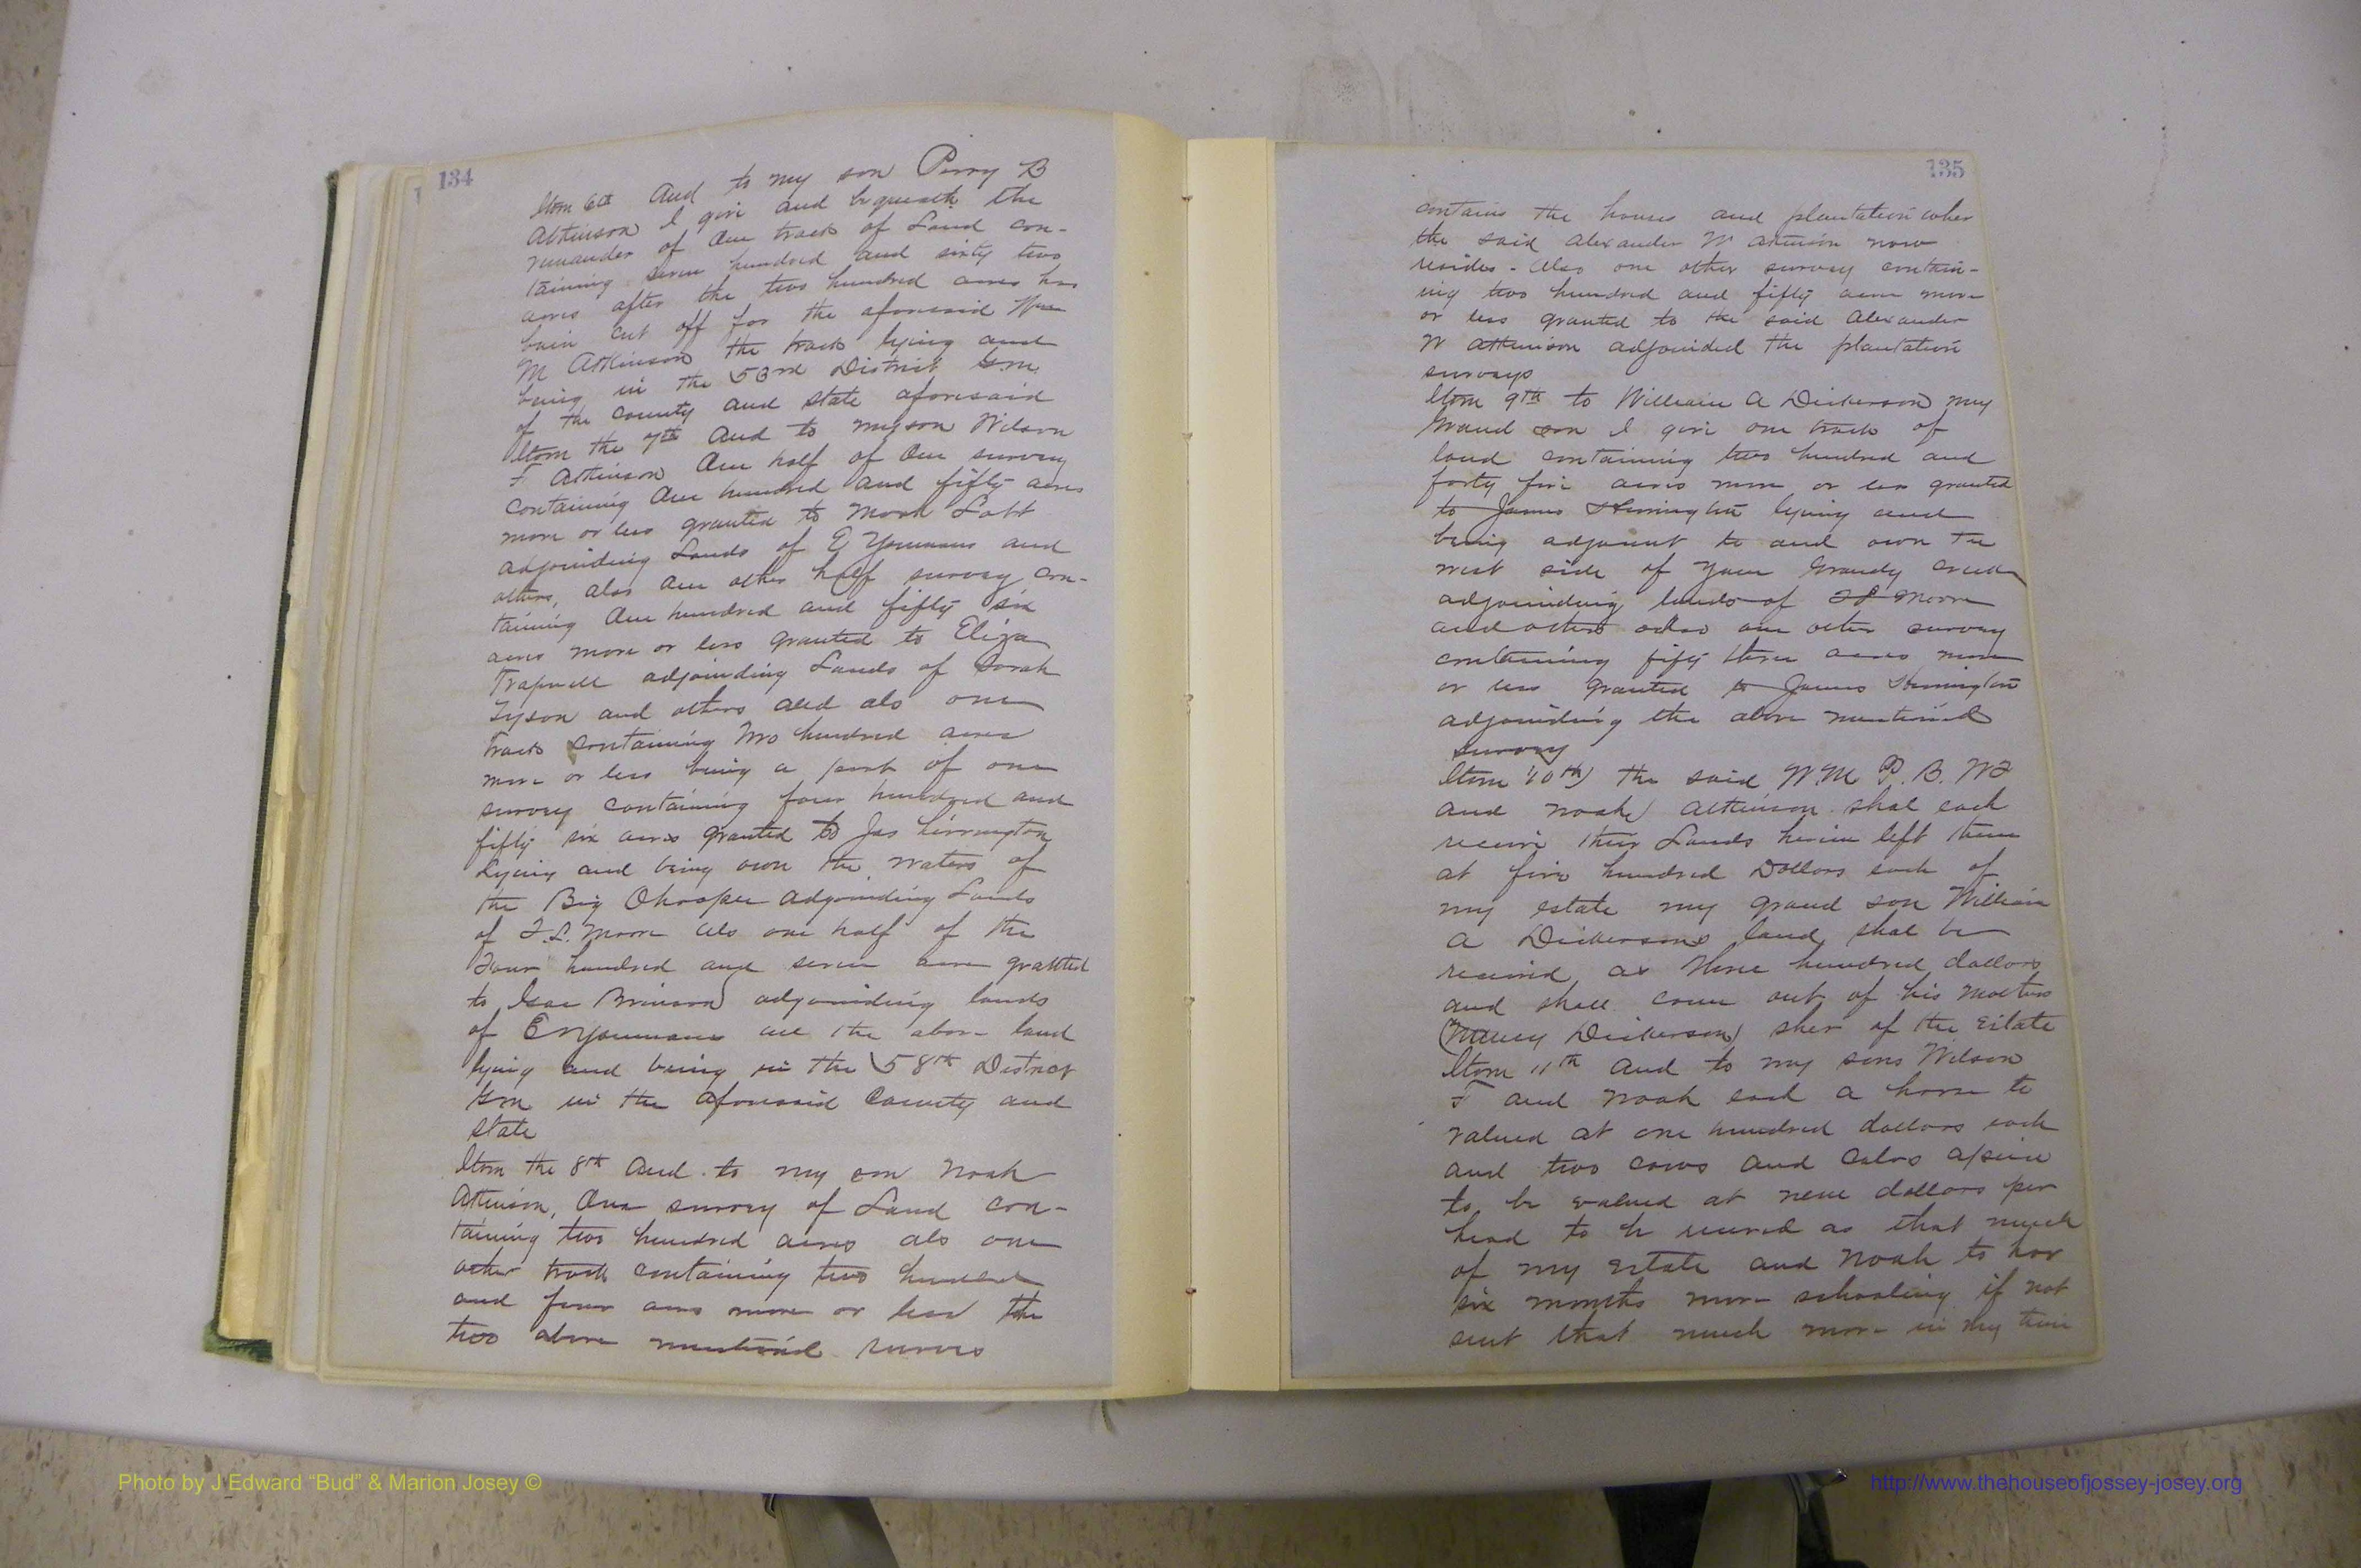 134
Itom 6th And to my son Perry B
Atkinson I give and bequeath the
remander of One track of Land con-
taining seven hundred and sixty two
acres after the two hundred acres has
bein cut off for the aforesaid Wm
M Atkinson the track lying and
being in the 53rd District G.m.
of the county and state aforesaid
Itom the 7th And to my son Wilson
F Atkinson One half of One survey
containing One hundred and fifty acres
more or less granted to Mark Lott
adjoinding Lands of E Youmans and
others, also one other half survey con-
taining One hundred and fifty six
acres more or less granted to Eliza
Trapnell adjoinding Lands of Sarah
Tyson and others and als one
track containing two hundred acres
more or less being a part of one
survey containing four hundred and
fifty six acres granted to Jas Herrington
Lying and being own the waters of
the Big Ohoopee adjoinding Lands
of F.L. Moore als one half of the
Four hundred and seven acres grattted
to Isac Brinson adjoinding lands
of E Youmans all the above land
lying and being in the 58th District
Gm in the aforesaid County and
state
Itom the 8th And to my son Noah
Atkinson, One survey of Land con-
taining two hundred acres als one
other track containing two hundred
and four acres more or less the
two above mentioned survies
135
contains the houses and plantation wher
the said Alexander W Atkinson now
resides - Also one other survey contain-
ing two hundred and fifty acres more
or less granted to the said Alexander
W Atkinson adjoinded the plantation
surveys
Itom 9th to William A Dickerson my
Grand son I give one track of
land containing two hundred and
forty five acres more or less granted
to James Herrington lying and
being adjacent to and own the
west side of Yam Grandy creek
adjoinding lands of F L Moore
and others also one other survey
containing fifty three acres more
or less granted to James Herrington
adjoinding the above mentioned
survey
Itom 10th) the said W.M. P.B. W F
and Noah Atkinson shal each
receive their Lands herein left them
at five hundred Dollars each of
my estate my grand son William
A Dickersons land shal be
received as three hundred dollars
and shall come out of his Mothers
(Nancy Dickerson) sher of the Estate
Itom 11th And to my sons Wilson
F and Noah each a horse to
valued at one hundred dollars each
and two cows and calvs apeice
to be valued at nine dollars per
head to be received as that much
of my estate and Noah to hav
six months more schooling if not
sent that much more in my time
Photo by J Edward “Bud” & Marion Josey ©
http://www.thehouseofjossey-josey.org